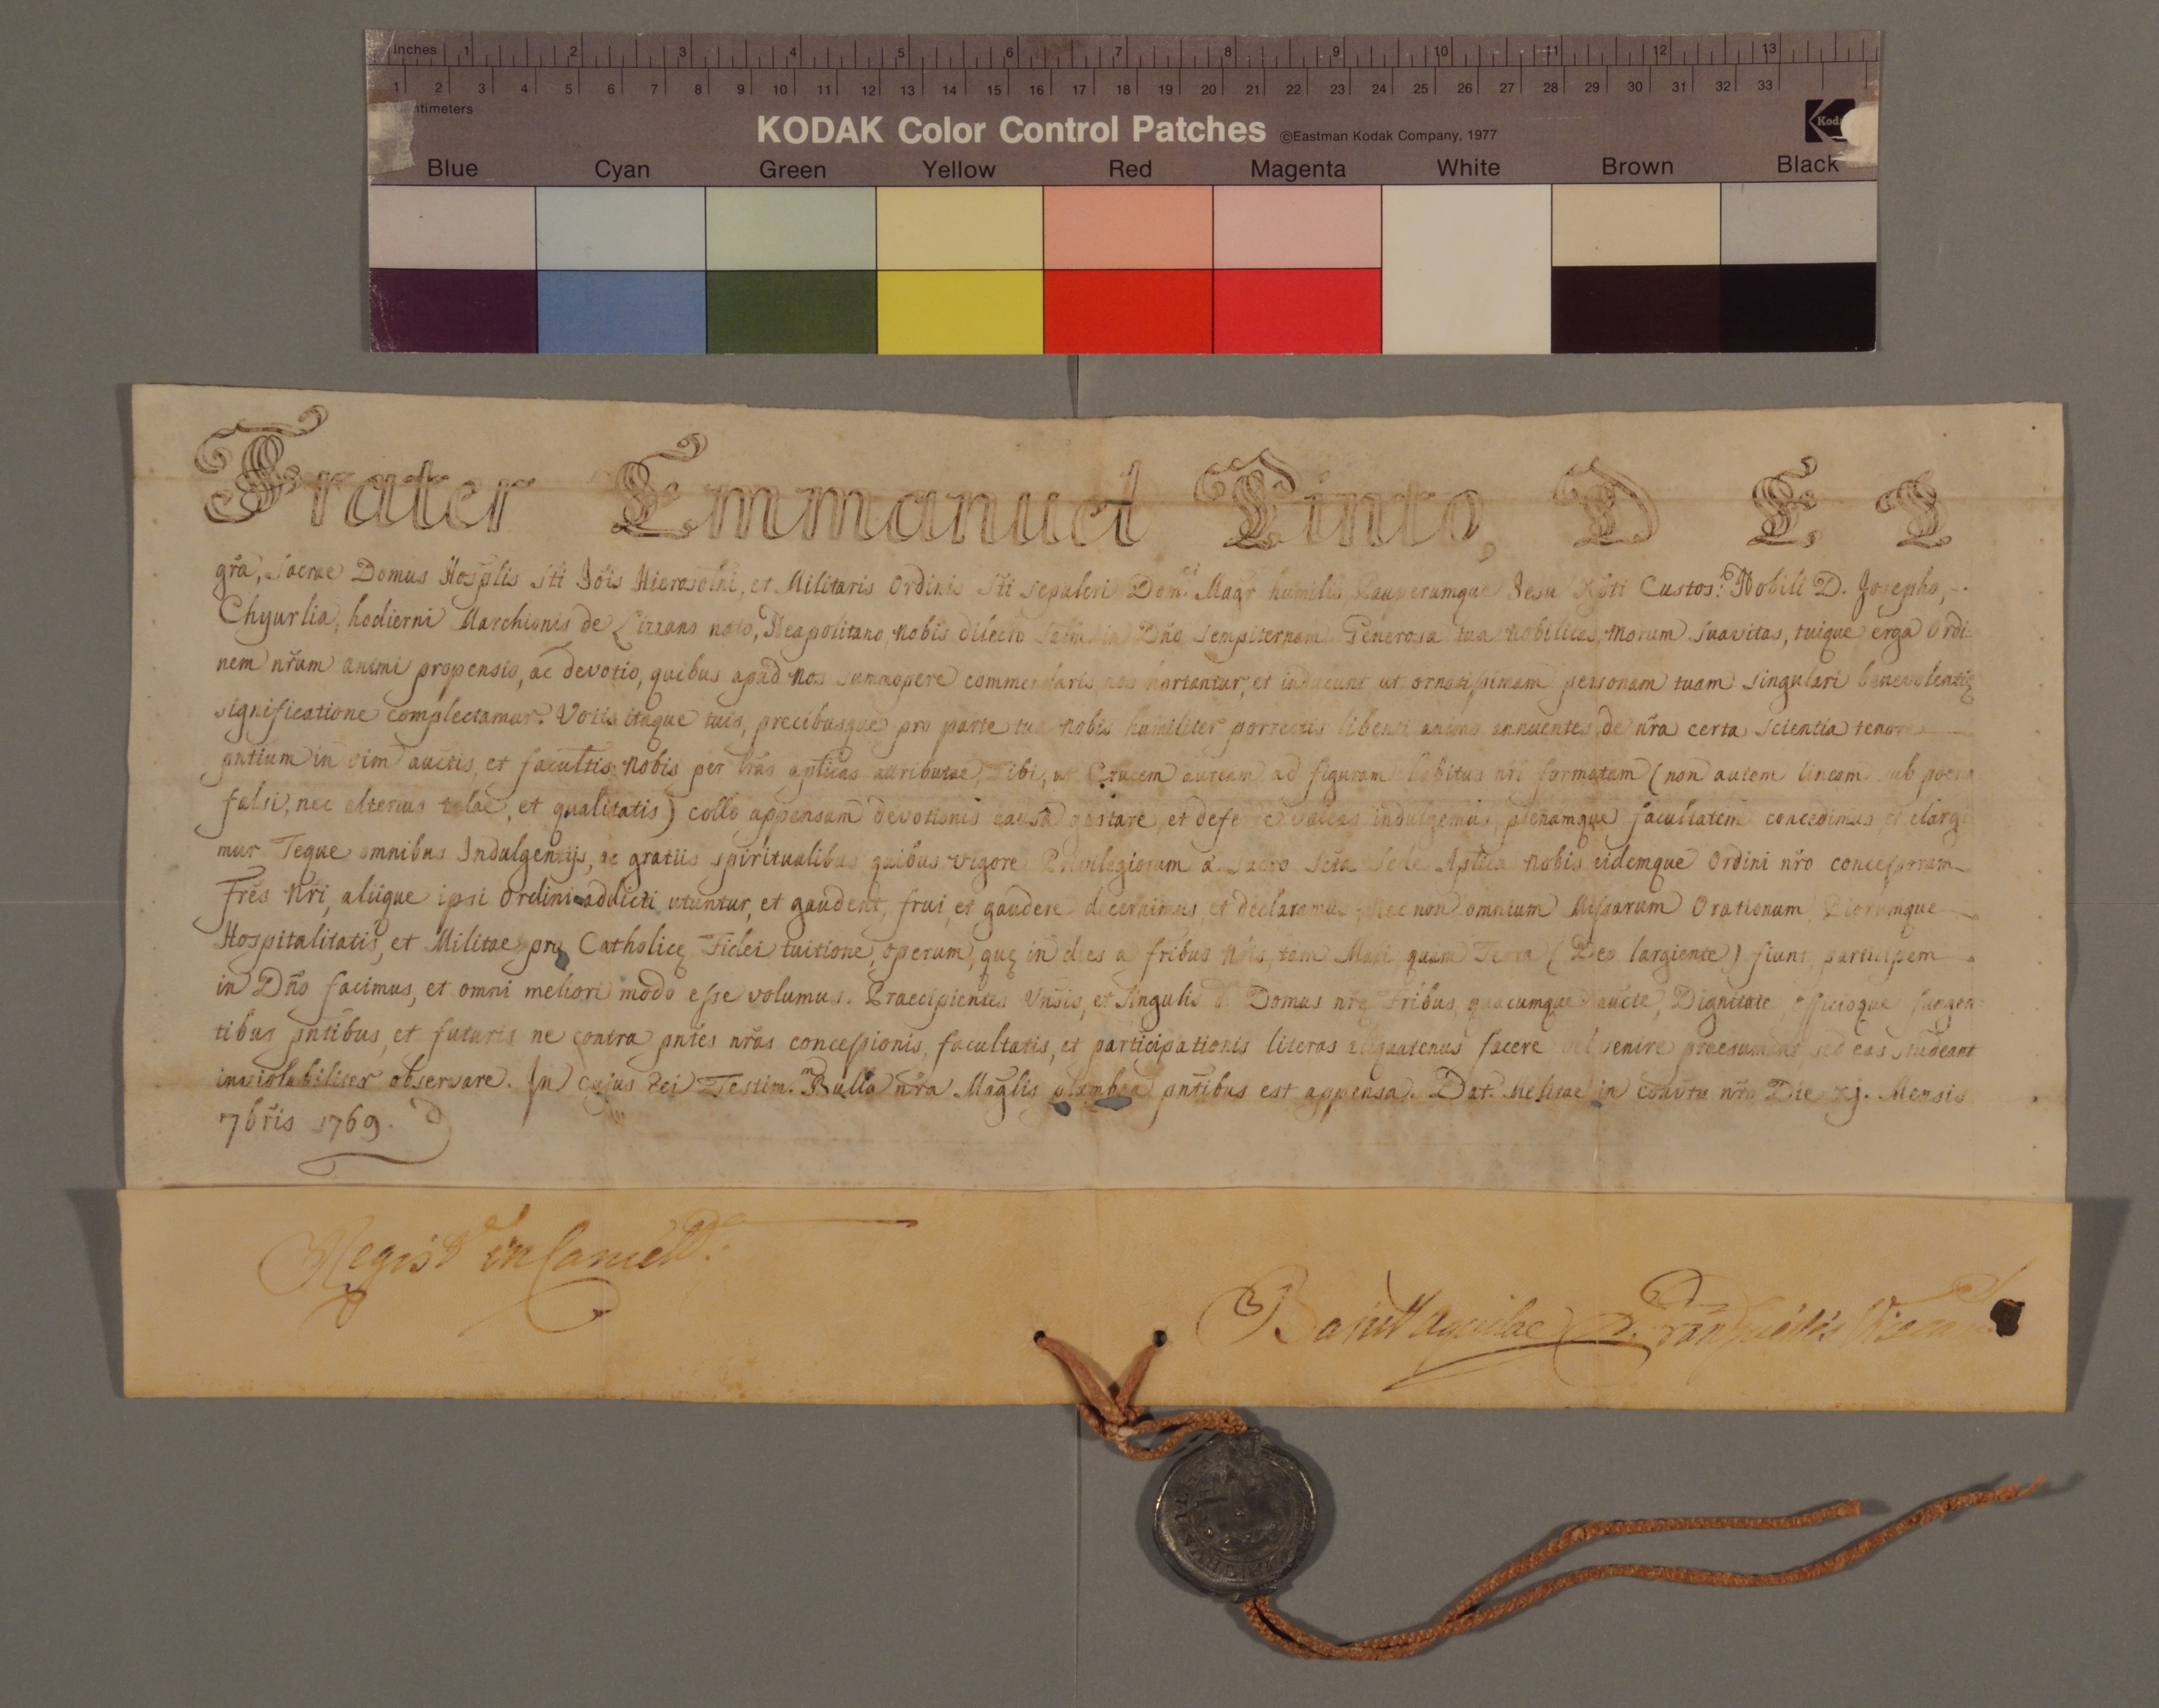 inches 1 2 3 4 5 6 7 8 9 10 11 12 13
1 2 3 4 5 6 7 8 9 10 11 12 13 14 15 16 17 18 19 20 21 22 23 24 25 26 27 28 29 30 31 32 33
ntimeters
KODAK Color Control Patches ©Eastman Kodak Company, 1977
Kod
Blue Cyan Green Yellow Red Magenta White Brown Black
Frater Emmanuel Pinto, D E I
gr̃a, Sacrae Domus Hosp̃lis Sti Jõis Hierosolñi, et Militaris Ordinis Sti Sepulcri Don.ci Mag̃r humilis, Pauperumque Jesu Xp̃ti Custos: Nobili D. Josepho,
Chyurlia, hodierni Marchionis de Lizzano nato, Neapolitano nobis dilecto Dño sempiternam. Generosa tua nobilitas, morum suavitas, tuique erga Ordi-
nem nr̃um animi propensio, ac devotio, quibus apud nos summopere commendaris nos hortantur, et inducunt ut ornatissimam personam tuam singulari benevolentię
significatione complectamur. Votis itaque tuis, precibusque pro parte tua nobis humiliter porrectis libenti animo annuentes, de nr̃a certa scientia tenore
pñtium in vim auctis, et facultis nobis per lr̃as ap̃licas attributae, Tibi, ut Crucem auream ad figuram habitus nr̃i formatam (non autem lineam sub poena
falsi, nec alterius telae, et qualitatis) collo appensam devotionis causa gestare, et deferre valeas indulgemus, plenamque facultatem concedimus, et elargi
mur Teque omnibus Indulgentijs, ac gratiis spiritualibus quibus vigore Privilegiorum a Sacro Sc̃ta Sede Ap̃lica nobis eidemque Ordini nr̃o concessorum
Fr̃es Nr̃i, aliique ipsi Ordini addicti utuntur, et gaudent, frui, et gaudere decernimus, et declaramus, Nec non omnium Missarum Orationum Piorumque
Hospitalitatis, et Militae pro Catholicę Fidei tuitione, operum, quę in dies a fr̃ibus nr̃is, tam Mari quam Terra (Deo largiente) fiunt participem
in Dño facimus, et omni meliori modo esse volumus. Praecipientes Uñsis, et Singulis d. Domus nr̃ę Fr̃ibus, quacumque aucte, Dignitate, officioque fungen
tibus pñtibus, et futuris ne contra pñtes nr̃as concessionis, facultatis, et participationis literas aliquatenus facere vel venire praesumant sed eas studeant
inviolabiliter observare. In cujus Rei Testim.m Bulla nr̃a Mag̃lis plumbea pñtibus est appensa. Dat. Melitae in Conṽtu nr̃o Die xj. Mensis
7br̃is 1769.
Regis.ta in Cancell.a